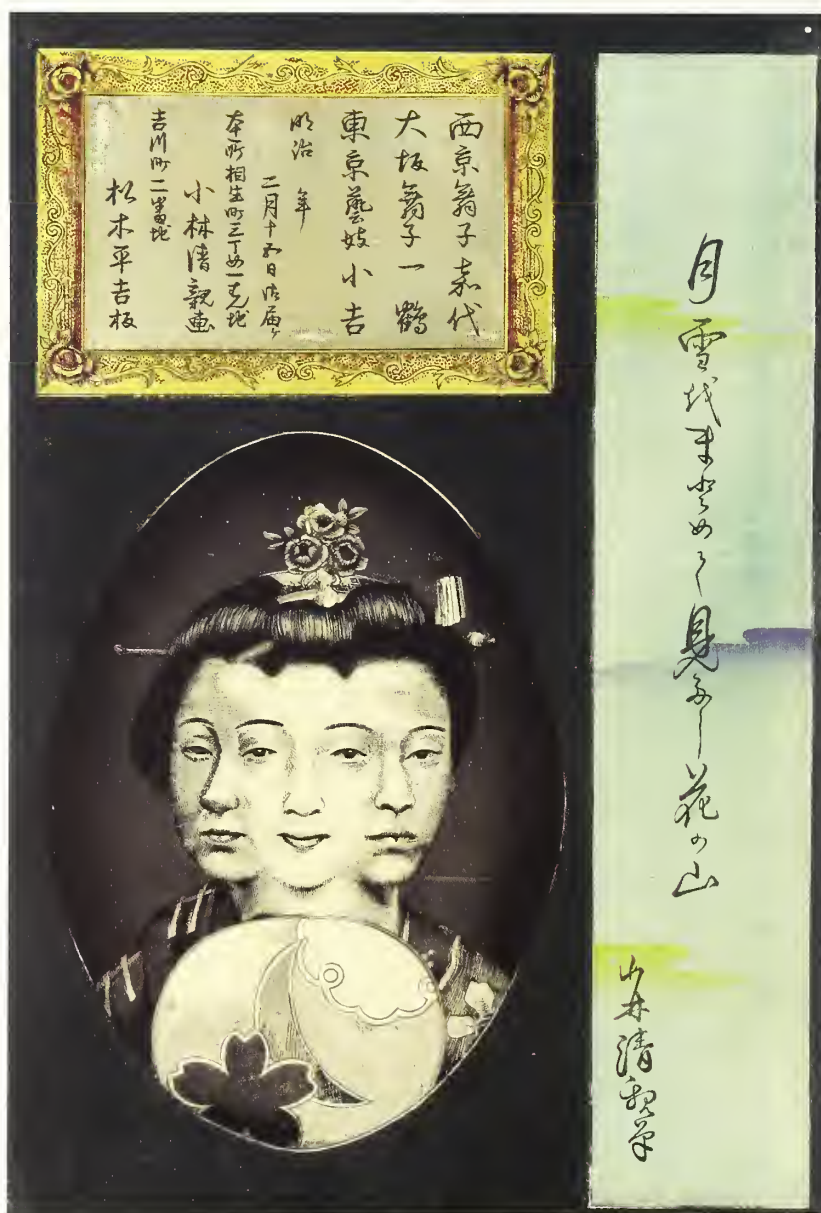 月雪越ま登めて見多し花の山
小林清親筆
西京舞子嘉代
大坂舞子一鶴
東京藝妓小吉
明治 年
二月十五日御届ヶ
本所相生町三丁め一 地
小林清親画
吉川町二番地
松木平吉板